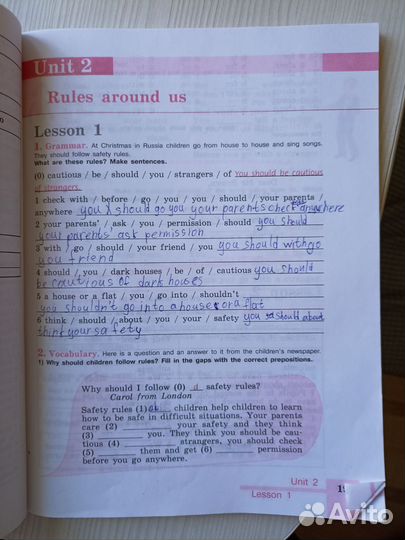 Unit 2
Rules around us
Lesson 1
1. Grammar. At Christmas in Russia children go from house to house and sing songs.
They should follow safety rules.
What are these rules? Make sentences.
(0) cautious / be / should / you / strangers / of You should be cautious
of strangers.
1 check with / before / go / you / you / should / your parents /
anywhere you should go you your parents check anywhere
2 your parents' / ask / you / permission / should you should
your parents ask permission
3 with / go / should / your friend / you you should with go
you friend
4 should / you / dark houses / be / of / cautious you should
be cautious of dark houses
5 a house or a flat / you / go into / shouldn't
you shouldn't go into a house or a flat
6 think / should / about / you / your / safety you should about
think your safety
2. Vocabulary. Here is a question and an answer to it from the children's newspaper.
1) Why should children follow rules? Fill in the gaps with the correct prepositions.
Why should I follow (0) safety rules?
Carol from London
Safety rules (1) children help children to learn
how to be safe in difficult situations. Your parents
care (2) your safety and they think
(3) you. They think you should be cau-
tious (4) strangers, you should check
(5) them and get (6) permission
before you go anywhere.
Unit 2
Lesson 1
Avito